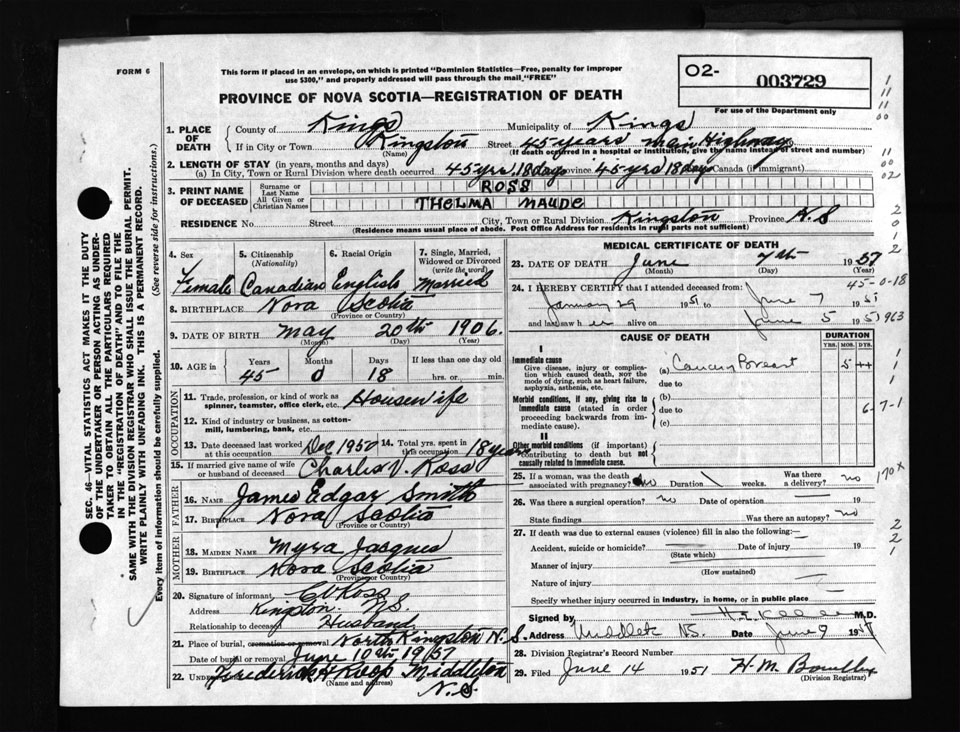 FORM 6
This form if placed in an envelope, on which is printed "Dominion Statistics—Free, penalty for improper
use $300," and properly addressed will pass through the mail "FREE"
O2- 003729
PROVINCE OF NOVA SCOTIA—REGISTRATION OF DEATH
For use of the Department only
1. PLACE OF DEATH
County of Kings Municipality of Kings
If in City or Town Kingston Street 45 years main Highway
(Name) (If death occurred in a hospital or institution, give the name instead of street and number)
2. LENGTH OF STAY (in years, months and days)
(a) In City, Town or Rural Division where death occurred 45 yrs. 18 days Province 45 yrs 18 days Canada (if immigrant)
3. PRINT NAME OF DECEASED
Surname or Last Name ROSS
All Given or Christian Names THELMA MAUDE
RESIDENCE No. Street City, Town or Rural Division Kingston Province N.S
(Residence means usual place of abode. Post Office Address for residents in rural parts not sufficient)
4. Sex 5. Citizenship (Nationality) 6. Racial Origin 7. Single, Married, Widowed or Divorced (write the word)
Female Canadian English Married
8. BIRTHPLACE Nova Scotia
(Province or Country)
9. DATE OF BIRTH May 20th 1906.
(Month) (Day) (Year)
10. AGE in Years Months Days If less than one day old
45 0 18 hrs. or min.
OCCUPATION
11. Trade, profession, or kind of work as spinner, teamster, office clerk, etc. Housewife
12. Kind of industry or business, as cotton-mill, lumbering, bank, etc.
13. Date deceased last worked at this occupation Dec 1950 14. Total yrs. spent in this occupation 18 years
15. If married give name of wife or husband of deceased Charles V. Ross
FATHER
16. NAME James Edgar Smith
17. BIRTHPLACE Nova Scotia
(Province or Country)
MOTHER
18. MAIDEN NAME Myra Jaques
19. BIRTHPLACE Nova Scotia
(Province or Country)
20. Signature of informant CV Ross
Address Kingston N.S.
Relationship to deceased Husband
21. Place of burial, cremation or removal North Kingston N.S.
Date of burial or removal June 10th 1951
22. Frederick H Roop Middleton
(Name and address) N.S
MEDICAL CERTIFICATE OF DEATH
23. DATE OF DEATH June 7th 1951
(Month) (Day) (Year)
45-0-18
24. I HEREBY CERTIFY that I attended deceased from:
January 29 1951 to June 7 1951
and last saw her alive on June 5 1951
963
CAUSE OF DEATH DURATION
YRS. MOS. DYS.
I
Immediate cause
Give disease, injury or complication which caused death, NOT the mode of dying, such as heart failure, asphyxia, asthenia, etc.
(a) Cancer Breast 5
due to
Morbid conditions, if any, giving rise to immediate cause (stated in order proceeding backwards from immediate cause).
(b)
due to 6-7-1
(c)
II
Other morbid conditions (if important) contributing to death but not causally related to immediate cause.
25. If a woman, was the death associated with pregnancy? No Duration weeks. Was there a delivery? no
170x
26. Was there a surgical operation? no Date of operation 19
State findings Was there an autopsy? no
27. If death was due to external causes (violence) fill in also the following:
Accident, suicide or homicide? Date of injury 19
(State which)
Manner of injury
(How sustained)
Nature of injury
Specify whether injury occurred in industry, in home, or in public place
Signed by M.D.
Address NS. Date June 9 19
28. Division Registrar's Record Number
29. Filed June 14 1951 H. M.
(Division Registrar)
SEC. 46—VITAL STATISTICS ACT MAKES IT THE DUTY
OF THE UNDERTAKER OR PERSON ACTING AS UNDER-
TAKER TO OBTAIN ALL THE PARTICULARS REQUIRED
IN THE "REGISTRATION OF DEATH" AND TO FILE THE
SAME WITH THE DIVISION REGISTRAR WHO SHALL ISSUE THE BURIAL PERMIT.
WRITE PLAINLY WITH UNFADING INK. THIS IS A PERMANENT RECORD.
Every item of information should be carefully supplied. (See reverse side for instructions.)